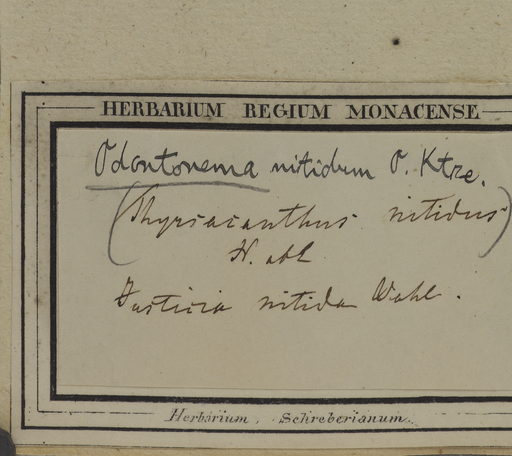 HERBARIUM REGIUM MONACENSE
Odontonema nitidum O. Ktze.
(Thyrsacanthus nitidus)
N. ab E.
Justicia nitida Wahl.
Herbarium Schreberianum.